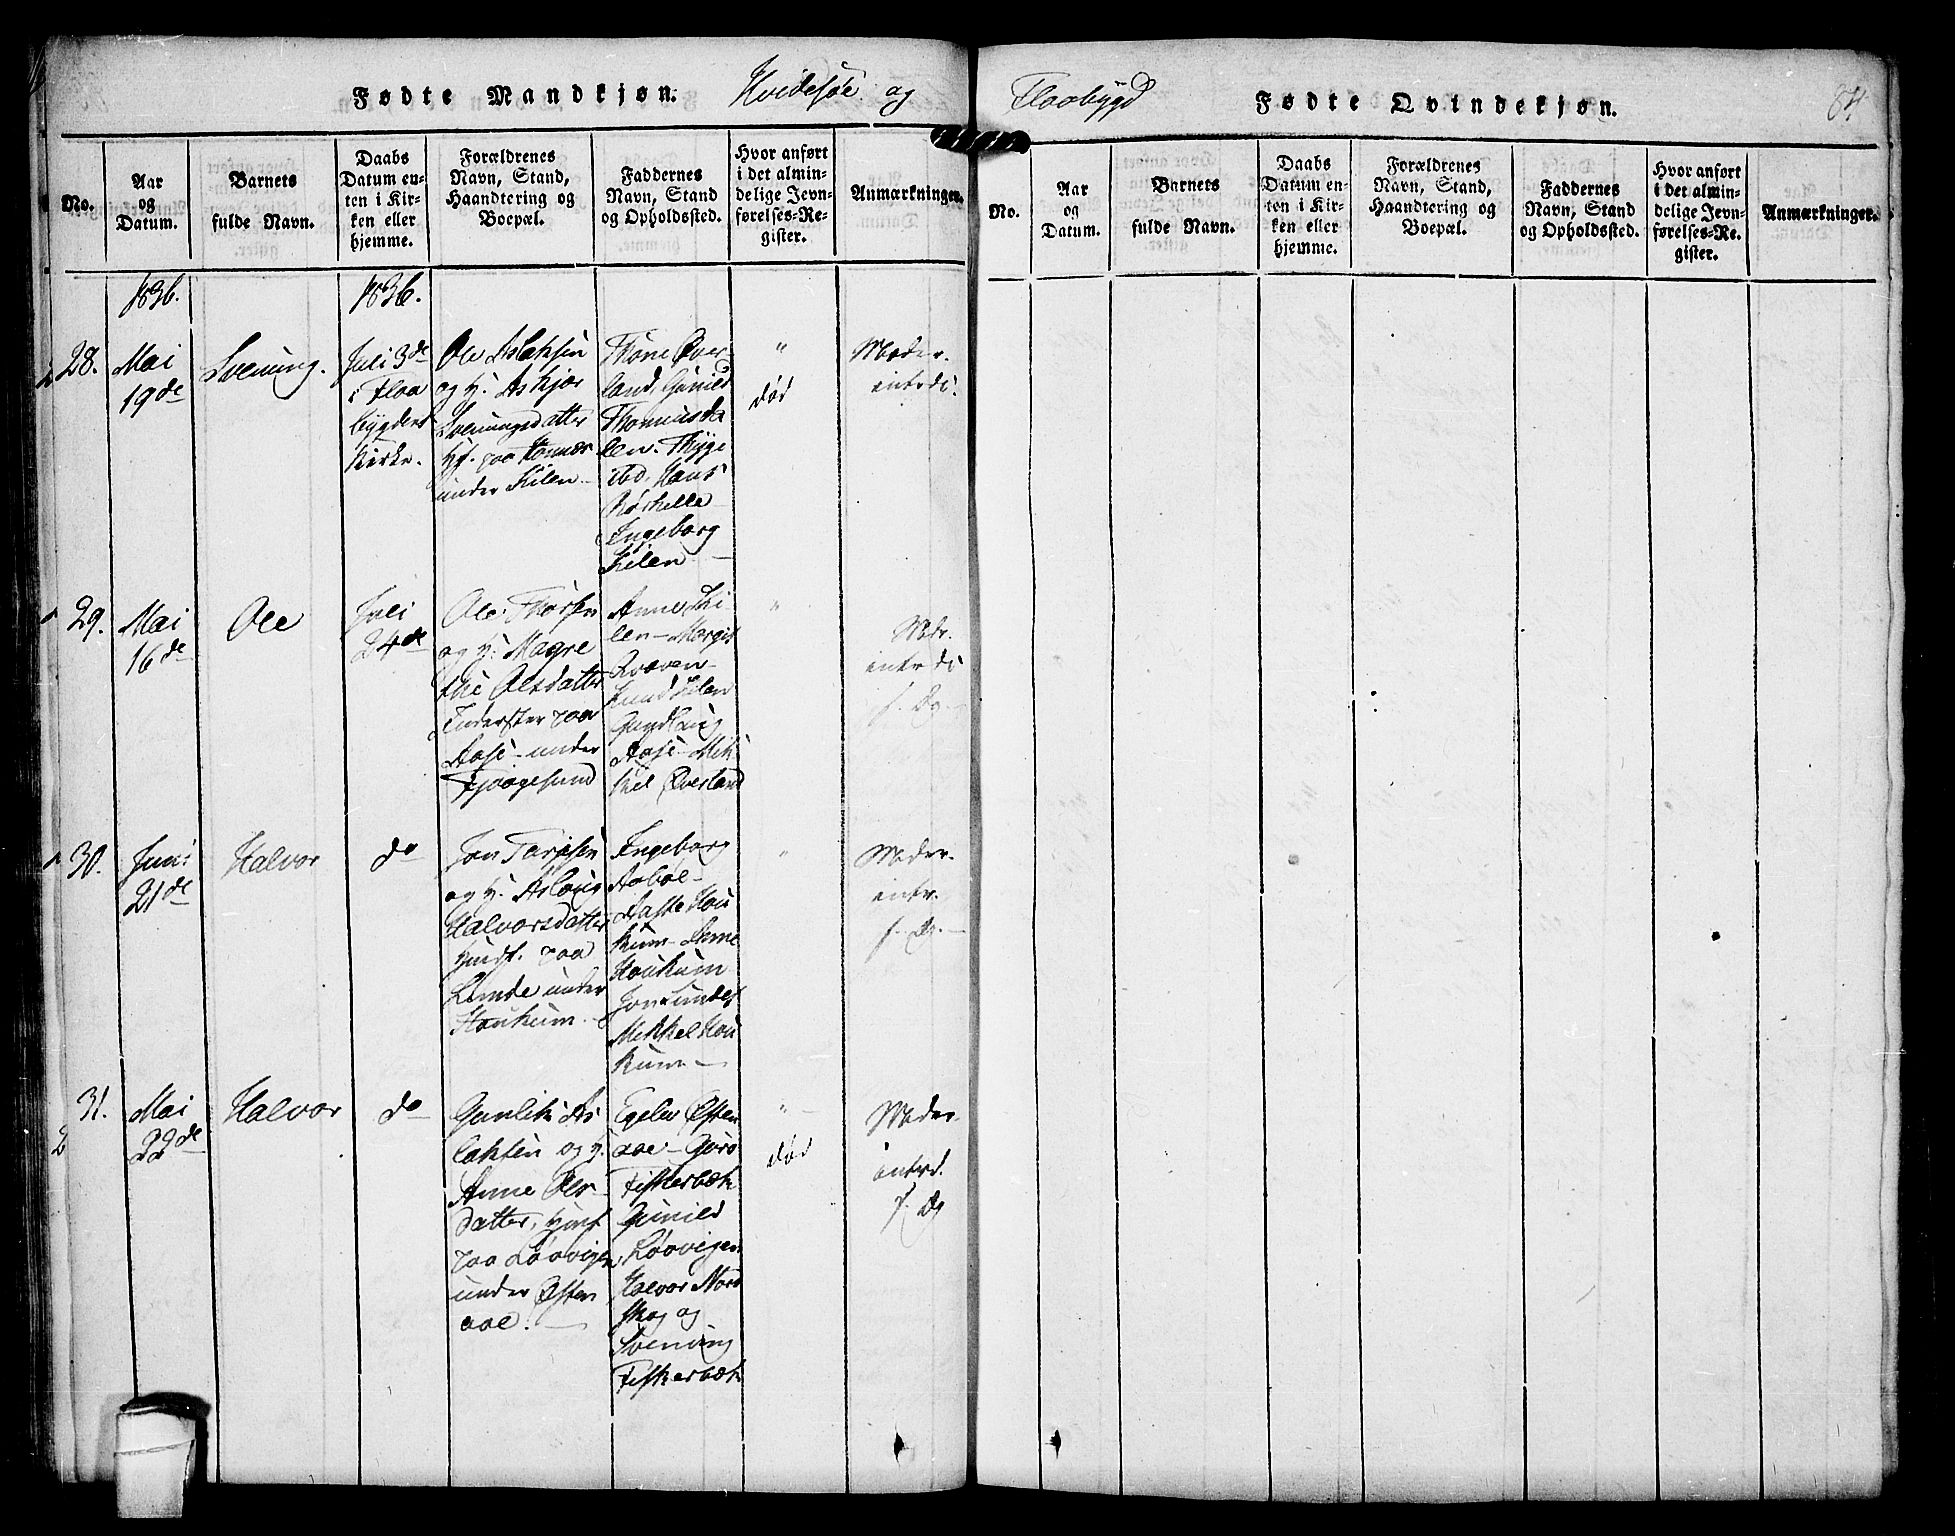 Fødte Mandkjøn. Hvidesøe og
No.
Aar
og
Datum.
Barnets
fulde Navn.
Daabs
Datum en-
ten i Kir-
ken eller
hjemme.
Forældrenes
Navn, Stand,
Haandtering og
Boepæl.
Faddernes
Navn, Stand
og Opholdssted.
Hvor anført
i det almin-
delige Jevn-
førelses-Re-
gister.
Anmærkninger.
1836.
1836.
28.
Mai
19de
Svenung.
Juli 3de
i Flaa
bygdens
Kirke.
Ole Aslaksen
og H: Askjær
Svenungsdatter
Hf. paa
under Kilen
Thone Over-
land, Gunild
Thomusda
len.
Hans
Ingeborg
Kilen
"
død
Moder.
intrdi.
29.
Mai
16de
Ole
Juli
24de
Ole
og H: Magre
the Olsdatter
Inderster paa
Aase under
Fjaagesund
Anne Ki-
len Margit
Kilen
Gundlaug
Aase Mik
kel Overland
"
Mdr.
intrdi
f. Dg
30.
Juni
21de
Halvor
do
Jon
og H: Aslaug
Halvorsdatter
paa
Lunde under
Haukum
Ingeborg
Aaboe
Hau
kum Anne
Haukum
Jon Lunde
Mikkel Hau
kum
"
Moder.
intr.
f. Dg.
31.
Mai
22de
Halvor
do
Gunlik As
laksen og H.
Anne Ols-
datter,
paa Løovigen
under Østen
aae.
Østen
aae Guro
Fiskerbæk
Gunild
Løovigen
Halvor Nord
skog og
Svenung
Fiskerbæk
"
død
Moder.
intrd.
f. Dg
Flaabygd Fødte Qvindekjøn. 84
No.
Aar
og
Datum.
Barnets
fulde Navn.
Daabs
Datum en-
ten i Kir-
ken eller
hjemme.
Forældrenes
Navn, Stand,
Haandtering og
Boepæl.
Faddernes
Navn, Stand
og Opholdssted.
Hvor anført
i det almin-
delige Jevn-
førelses-Re-
gister.
Anmærkninger.